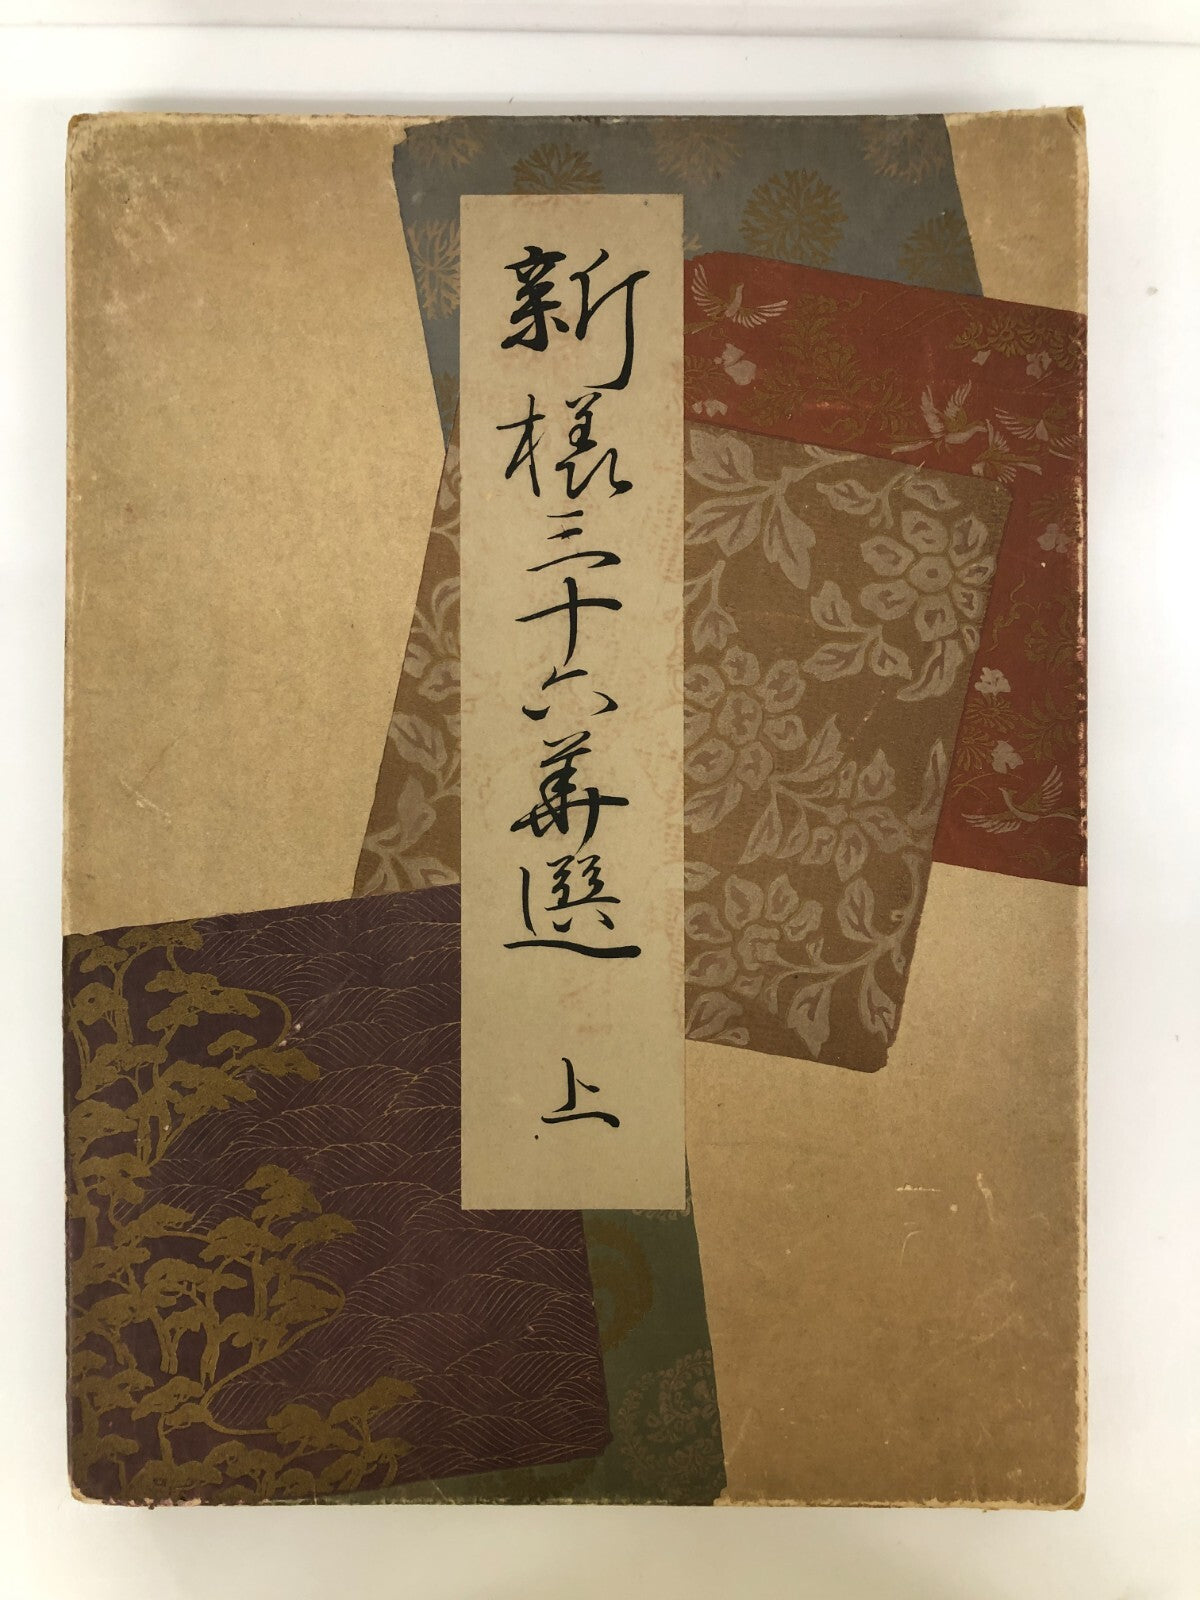 新様三十六華選 上